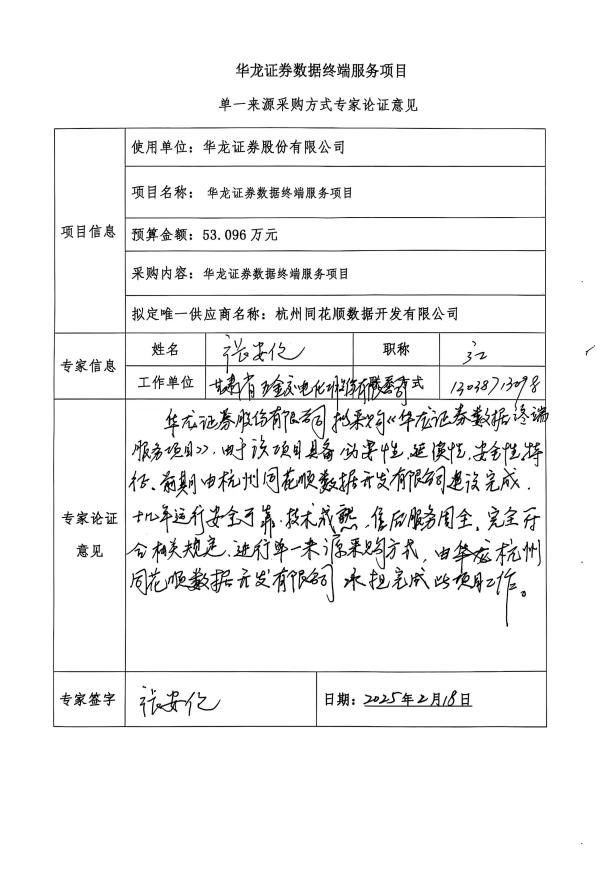 华龙证券数据终端服务项目
单一来源采购方式专家论证意见
项目信息
使用单位：华龙证券股份有限公司
项目名称：华龙证券数据终端服务项目
预算金额：53.096万元
采购内容：华龙证券数据终端服务项目
拟定唯一供应商名称：杭州同花顺数据开发有限公司
专家信息
姓名 张安伦 职称 高工
工作单位 甘肃省五金交电化工股份有限公司 联系方式 13038713098
专家论证
意见
华龙证券股份有限公司拟采购《华龙证券数据终端
服务项目》，由于该项目具备 性、延续性、安全性特
征、前期由杭州同花顺数据开发有限公司建设完成，
年运行安全可靠、技术成熟、售后服务周全。完全符
合相关规定，进行单一来源采购方式，由华龙杭州
同花顺数据开发有限公司承担完成此项目工作。
专家签字 张安伦 日期：2025年2月18日